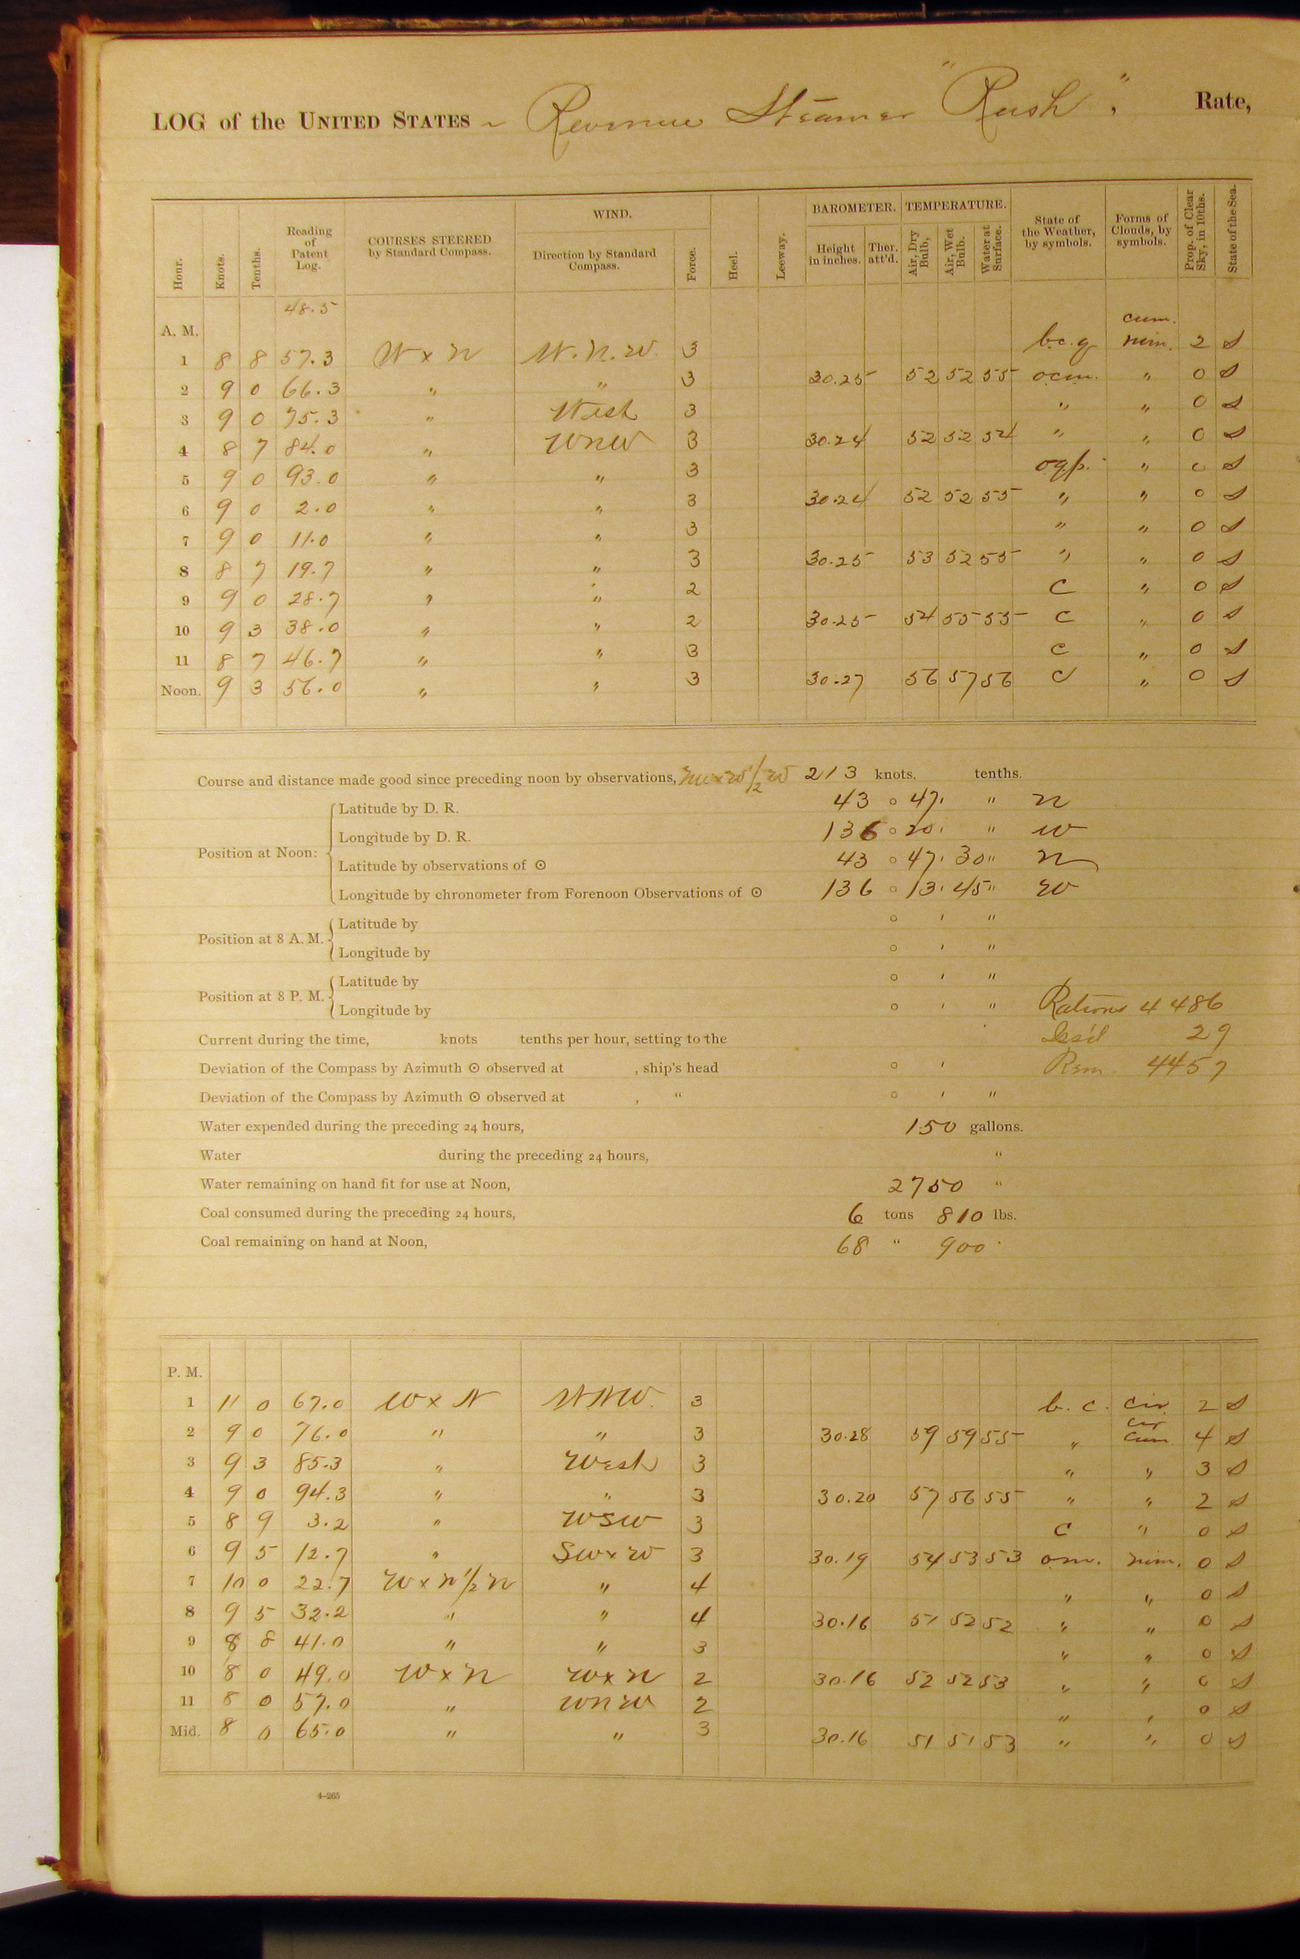 LOG of the UNITED STATES Revenue Steamer "Rush", Rate,
Hour. Knots. Tenths. Reading of Patent Log. COURSES STEERED by Standard Compass. WIND. Direction by Standard Compass. Force. Heel. Leeway. BAROMETER. Height in inches. Ther. att'd. TEMPERATURE. Air, Dry Bulb. Air, Wet Bulb. Water at Surface. State of the Weather, by symbols. Forms of Clouds, by symbols. Prop. of Clear Sky, in 10ths. State of the Sea.
48.5
A. M. cum.
1 8 8 57.3 W x N W.N.W. 3 b.c.g nim. 2 S
2 9 0 66.3 " " 3 30.25 52 52 55 o.c.m. " 0 S
3 9 0 75.3 " West 3 " " 0 S
4 8 7 84.0 " WNW 3 30.24 52 52 54 " " 0 S
5 9 0 93.0 " " 3 ogp. " 0 S
6 9 0 2.0 " " 3 30.24 52 52 55 " " 0 S
7 9 0 11.0 " " 3 " " 0 S
8 8 7 19.7 " " 3 30.25 53 52 55 " " 0 S
9 9 0 28.7 " " 2 C " 0 S
10 9 3 38.0 " " 2 30.25 54 55 55 C " 0 S
11 8 7 46.7 " " 3 C " 0 S
Noon. 9 3 56.0 " " 3 30.27 56 57 56 C " 0 S
Course and distance made good since preceding noon by observations, NW x W 1/2 W 213 knots. tenths.
Position at Noon: Latitude by D. R. 43 ° 47 ' " N
Longitude by D. R. 136 ° 20 ' " W
Latitude by observations of ☉ 43 ° 47 ' 30 " N
Longitude by chronometer from Forenoon Observations of ☉ 136 ° 13 ' 45 " W
Position at 8 A. M. Latitude by ° ' "
Longitude by ° ' "
Position at 8 P. M. Latitude by ° ' "
Longitude by ° ' " Rations 4486
Current during the time, knots tenths per hour, setting to the Iss'd 29
Deviation of the Compass by Azimuth ☉ observed at , ship's head ° ' Rem. 4457
Deviation of the Compass by Azimuth ☉ observed at , " ° ' "
Water expended during the preceding 24 hours, 150 gallons.
Water during the preceding 24 hours, "
Water remaining on hand fit for use at Noon, 2750 "
Coal consumed during the preceding 24 hours, 6 tons 810 lbs.
Coal remaining on hand at Noon, 68 " 900
P. M.
1 11 0 67.0 W x N WNW. 3 b. c. cir. 2 S
2 9 0 76.0 " " 3 30.28 59 59 55 " cir cum 4 S
3 9 3 85.3 " West 3 " " 3 S
4 9 0 94.3 " " 3 30.20 57 56 55 " " 2 S
5 8 9 3.2 " WSW 3 C " 0 S
6 9 5 12.7 " SW x W 3 30.19 54 53 53 om. nim. 0 S
7 10 0 22.7 W x N 1/2 N " 4 " " 0 S
8 9 5 32.2 " " 4 30.16 51 52 52 " " 0 S
9 8 8 41.0 " " 3 " " 0 S
10 8 0 49.0 W x N W x N 2 30.16 52 52 53 " " 0 S
11 8 0 57.0 " WNW 2 " " 0 S
Mid. 8 0 65.0 " " 3 30.16 51 51 53 " " 0 S
4-265